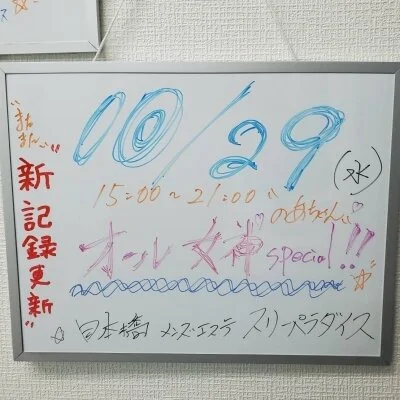 10/29
(水)
15:00〜21:00
のあちゃん
オール女神special!!
"新記録更新"
☆日本橋 メンズエステ スリーパラダイス